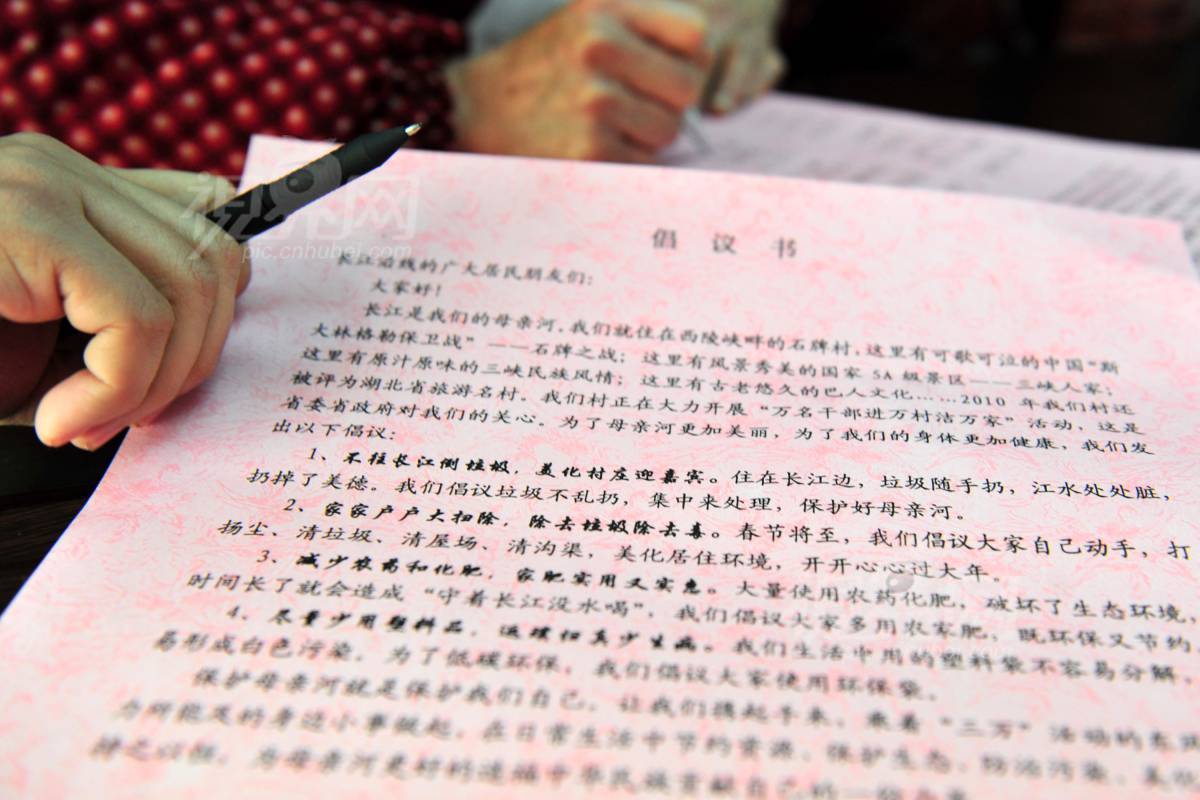 视界网
pic.cnhubei.com
倡议书
长江沿线的广大居民朋友们：
大家好！
长江是我们的母亲河，我们就住在西陵峡畔的石牌村，这里有可歌可泣的中国“斯
大林格勒保卫战”——石牌之战；这里有风景秀美的国家5A级景区——三峡人家；
这里有原汁原味的三峡民族风情；这里有古老悠久的巴人文化……2010年我们村还
被评为湖北省旅游名村。我们村正在大力开展“万名干部进万村洁万家”活动，这是
省委省政府对我们的关心。为了母亲河更加美丽，为了我们的身体更加健康，我们发
出以下倡议：
1、不往长江倒垃圾，美化村庄迎嘉宾。住在长江边，垃圾随手扔，江水处处脏，
扔掉了美德。我们倡议垃圾不乱扔，集中来处理，保护好母亲河。
2、家家户户大扫除，除去垃圾除去毒。春节将至，我们倡议大家自己动手，打
扬尘、清垃圾、清屋场、清沟渠，美化居住环境，开开心心过大年。
3、减少农药和化肥，家肥实用又实惠。大量使用农药化肥，破坏了生态环境，
时间长了就会造成“守着长江没水喝”，我们倡议大家多用农家肥，既环保又节约。
4、尽量少用塑料品，返璞归真少生病。我们生活中用的塑料袋不容易分解，
易形成白色污染，为了低碳环保，我们倡议大家使用环保袋。
保护母亲河就是保护我们自己，让我们携起手来，乘着“三万”活动的东风
力所能及的身边小事做起，在日常生活中节约资源、保护生态、防治污染、美
持之以恒，为母亲河更好的造福中华民族贡献自己的一份力量